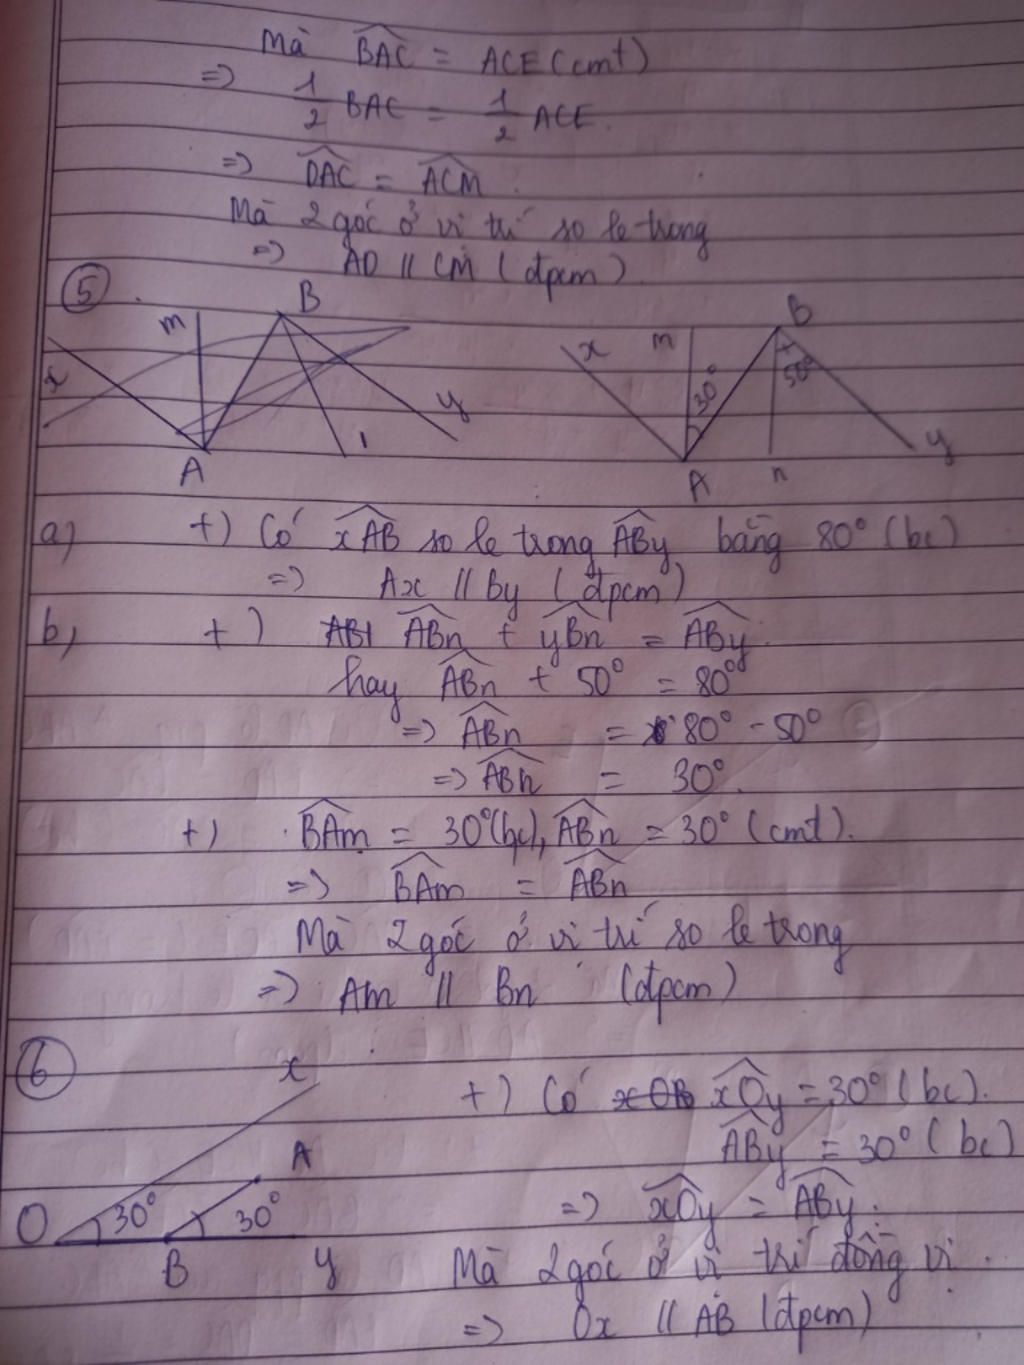 Mà BAC = ACE (cmt)
=> 1/2 BAC = 1/2 ACE.
=> DAC = ACM.
Mà 2 góc ở vị trí so le trong
=> AD // CM (đpcm)
5
B
m
x
y
A
B
x
m
30°
50°
y
A
n
a) +) Có xAB so le trong ABy bằng 80° (bc)
=> Ax // By (đpcm)
b, +) ABn + yBn = ABy.
hay ABn + 50° = 80°
=> ABn = 80° - 50°
=> ABn = 30°.
+) BAm = 30° (bc), ABn = 30° (cmt).
=> BAm = ABn
Mà 2 góc ở vị trí so le trong
=> Am // Bn (đpcm)
6
x
A
O 30° 30°
B y
+) Có xOy = 30° (bc).
ABy = 30° (bc)
=> xOy = ABy.
Mà 2 góc ở vị trí đồng vị.
=> Ox // AB (đpcm)